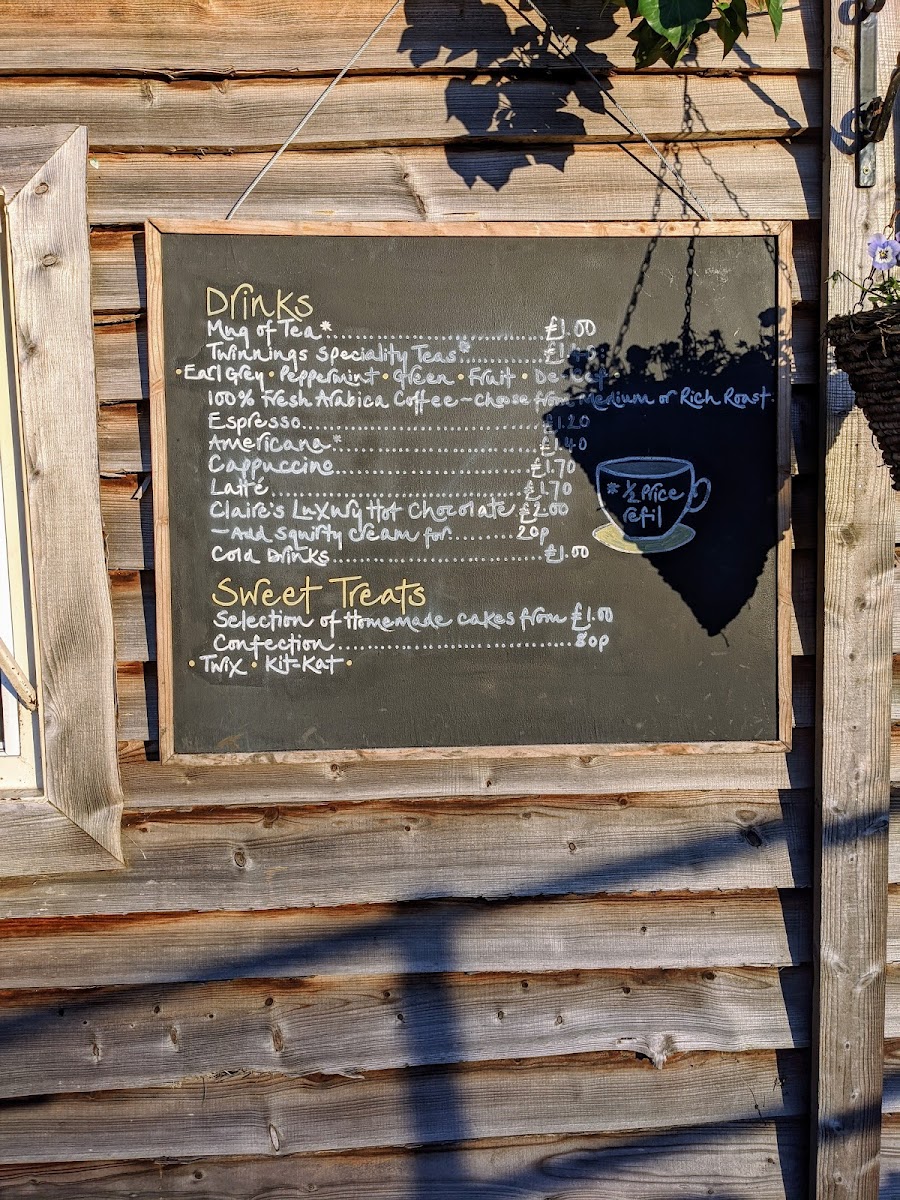 Drinks
Mug of Tea*.......................................£1.00
Twinnings Speciality Teas*...............
•Earl Grey • Peppermint • Green • Fruit •
100% Fresh Arabica Coffee - Choose from Medium or Rich Roast.
Espresso.......................................£1.20
Americana*...................................£1.40
Cappuccino...................................£1.70
Latté..............................................£1.70
Claire's Luxury Hot Chocolate £2.00
-Add squirty cream for..........20p
Cold Drinks....................................£1.00
* ½ Price
refil
Sweet Treats
Selection of Homemade cakes from £1.00
Confection.......................................80p
• Twix • Kit-Kat •